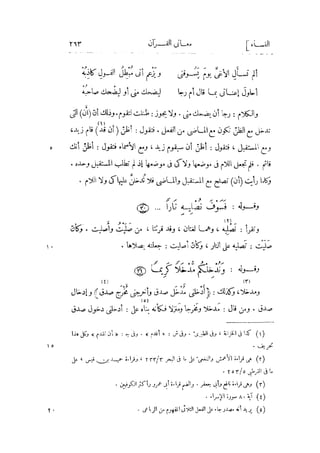 النساء ] معانى القرآن ٢٦٣
ألم تسألى الأعنى يوم يسوقنى ويزعم أنى مبطل القول كاذبه
أحاول إعناتى بما قال أم رجا ليضحك منى أو ليضحك صاحبه
والكلام : رجا أن يضحك منى . ولا يجوز : ظننت لتقوم . وذلك أن (أن) التى
تدخل مع الظن تكون مع الماضى من الفعل . فتقول : أظن ( أن قد ) قام زيد ،
ومع المستقبل ، فتقول : أظن أن سيقوم زيد ، ومع الأسماء فتقول : أظن أنك
قائم . فلم تجعل اللام فى موضعها ولا كى فى موضعها إذ لم تطلب المستقبل وحده .
وكلما رأيت (أن) تصلح مع المستقبل والماضى فلا تدخلن عليها كى ولا اللام .
وقوله : فسوف نصليه نارا ... (٣٠)
وتقرأ : نصليه ، وهما لغتان ، وقد قرئتا ، من صليت وأصليت . وكأن
صليت : تصليه على النار ، وكأن أصليت : جعلته يصلاها .
وقوله : وندخلكم مدخلا كريما (٣١)
ومدخلا ، وكذلك : (أدخلنى مدخل صدق وأخرجنى مخرج صدق) وإدخال
صدق . ومن قال : مدخلا ومخرجا ومنزلا فكأنه بناه على : أدخلنى دخول صدق
(١) كذا فى الخزانة
تحريف .
(٢) هى قراءة الأعمش والنخعى على ما فى البحر ٢٣٣/٣ ، وقراءة حميد بن قيس ، على
ما فى القرطبى ٢٥٣/٥ .
(٣) وهى قراءة نافع وأبى جعفر . والضم قراءة أبى عمرو وأكثر الكوفيين .
(٤) آية ٨٠ سورة الإسراء .
(٥) يريد أنه مصدر جاء على الفعل الثلاثى المفهوم من الرباعى .